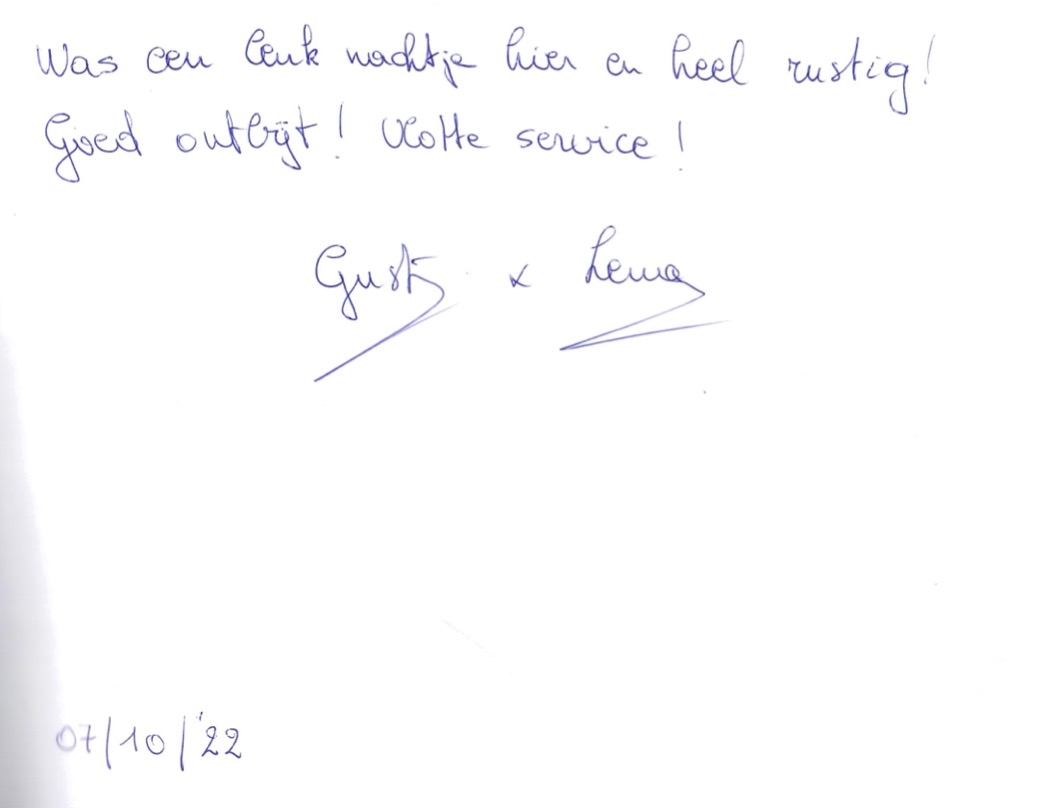 Was een leuk nachtje hier en heel rustig!
Goed ontbijt! Vlotte service!
07/10/'22